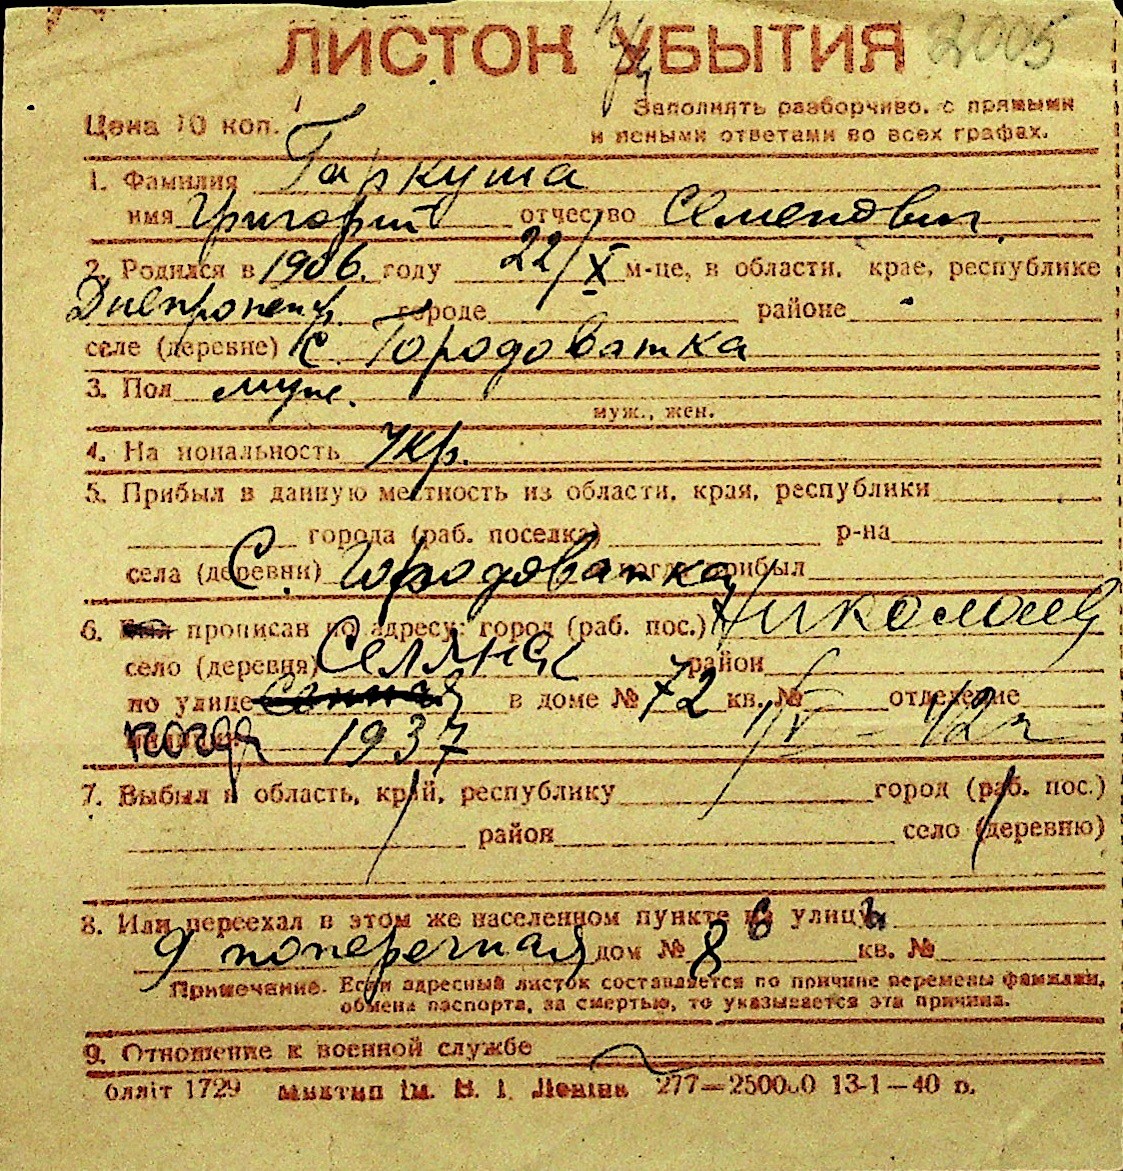 ЛИСТОК УБЫТИЯ 2005
Цена 10 коп.
Заполнять разборчиво, с прямыми
и ясными ответами во всех графах.
1. Фамилия Гаркуша
имя Григорий отчество Семенович
2. Родился в 1906. году 22/X м-це, в области, крае, республике
Днепропетр. городе районе
селе (деревне) С. Городоватка
3. Пол муж.
муж., жен.
4. На иональность Укр.
5. Прибыл в данную местность из области, края, республики
города (раб. поселка) р-на
села (деревни) С. Городоватка когда прибыл
6. Был прописан по адресу: город (раб. пос.) Николаев
село (деревня) Селянск район
по улице Сенная в доме № 72 кв. № отделение
когда 1937 IV - 42г
7. Выбыл в область, край, республику город (раб. пос.)
район село (деревню)
8. Или переехал в этом же населенном пункте на улицу
9 поперечная дом № 8 кв. №
Примечание. Если адресный листок составляется по причине перемены фамилии,
обмена паспорта, за смертью, то указывается эта причина.
9. Отношение к военной службе
блліт 1729 Миктип ім. В. І. Леніна 277—250000 13-1—40 р.